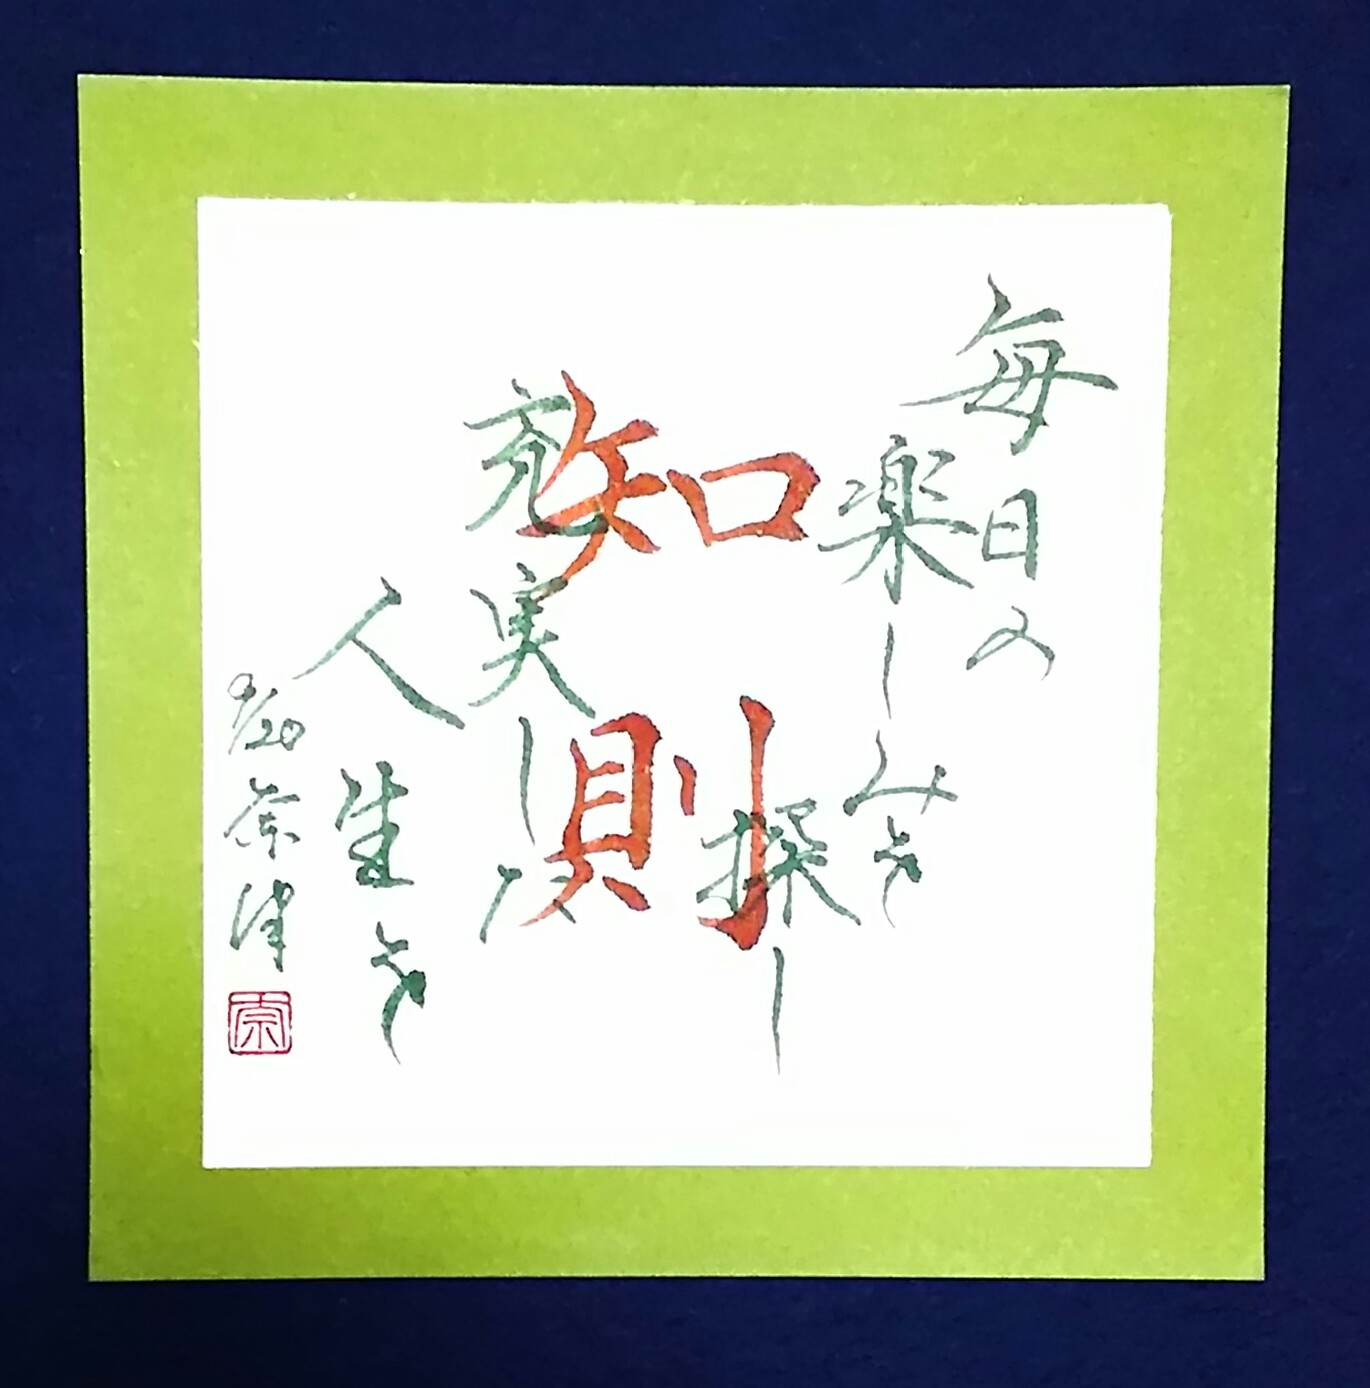 毎日の
楽しみを
探し
充実した
人生を
知則
9/20 奈津